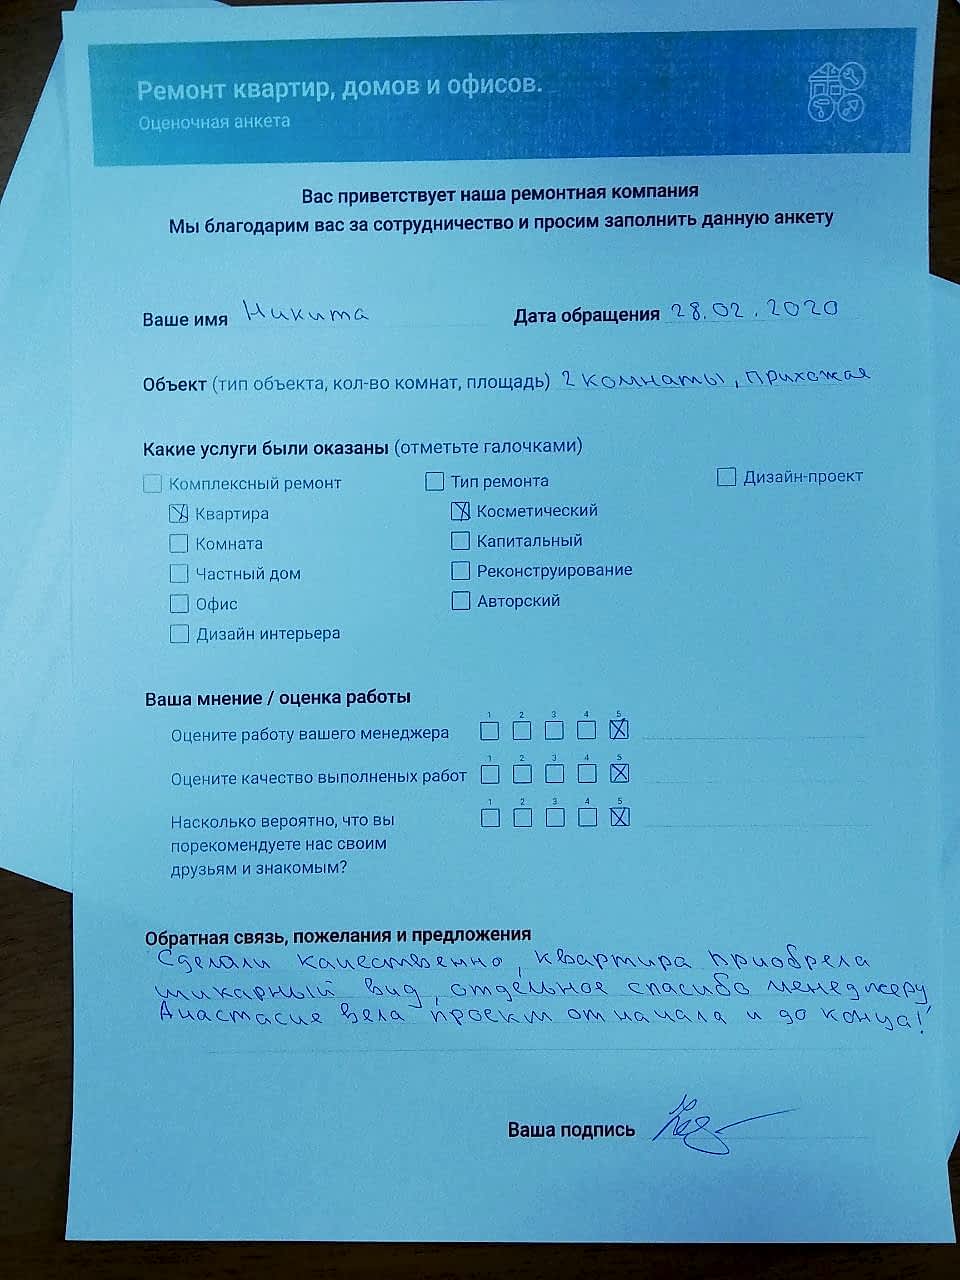 Ремонт квартир, домов и офисов.
Оценочная анкета
Вас приветствует наша ремонтная компания
Мы благодарим вас за сотрудничество и просим заполнить данную анкету
Ваше имя Никита Дата обращения 28.02.2020
Объект (тип объекта, кол-во комнат, площадь) 2 комнаты, прихожая
Какие услуги были оказаны (отметьте галочками)
Комплексный ремонт Тип ремонта Дизайн-проект
Квартира Косметический
Комната Капитальный
Частный дом Реконструирование
Офис Авторский
Дизайн интерьера
Ваша мнение / оценка работы
1 2 3 4 5
Оцените работу вашего менеджера
1 2 3 4 5
Оцените качество выполненых работ
1 2 3 4 5
Насколько вероятно, что вы
порекомендуете нас своим
друзьям и знакомым?
Обратная связь, пожелания и предложения
Сделали качественно, квартира приобрела
шикарный вид, отдельное спасибо менеджеру
Анастасие вела проект от начала и до конца!
Ваша подпись